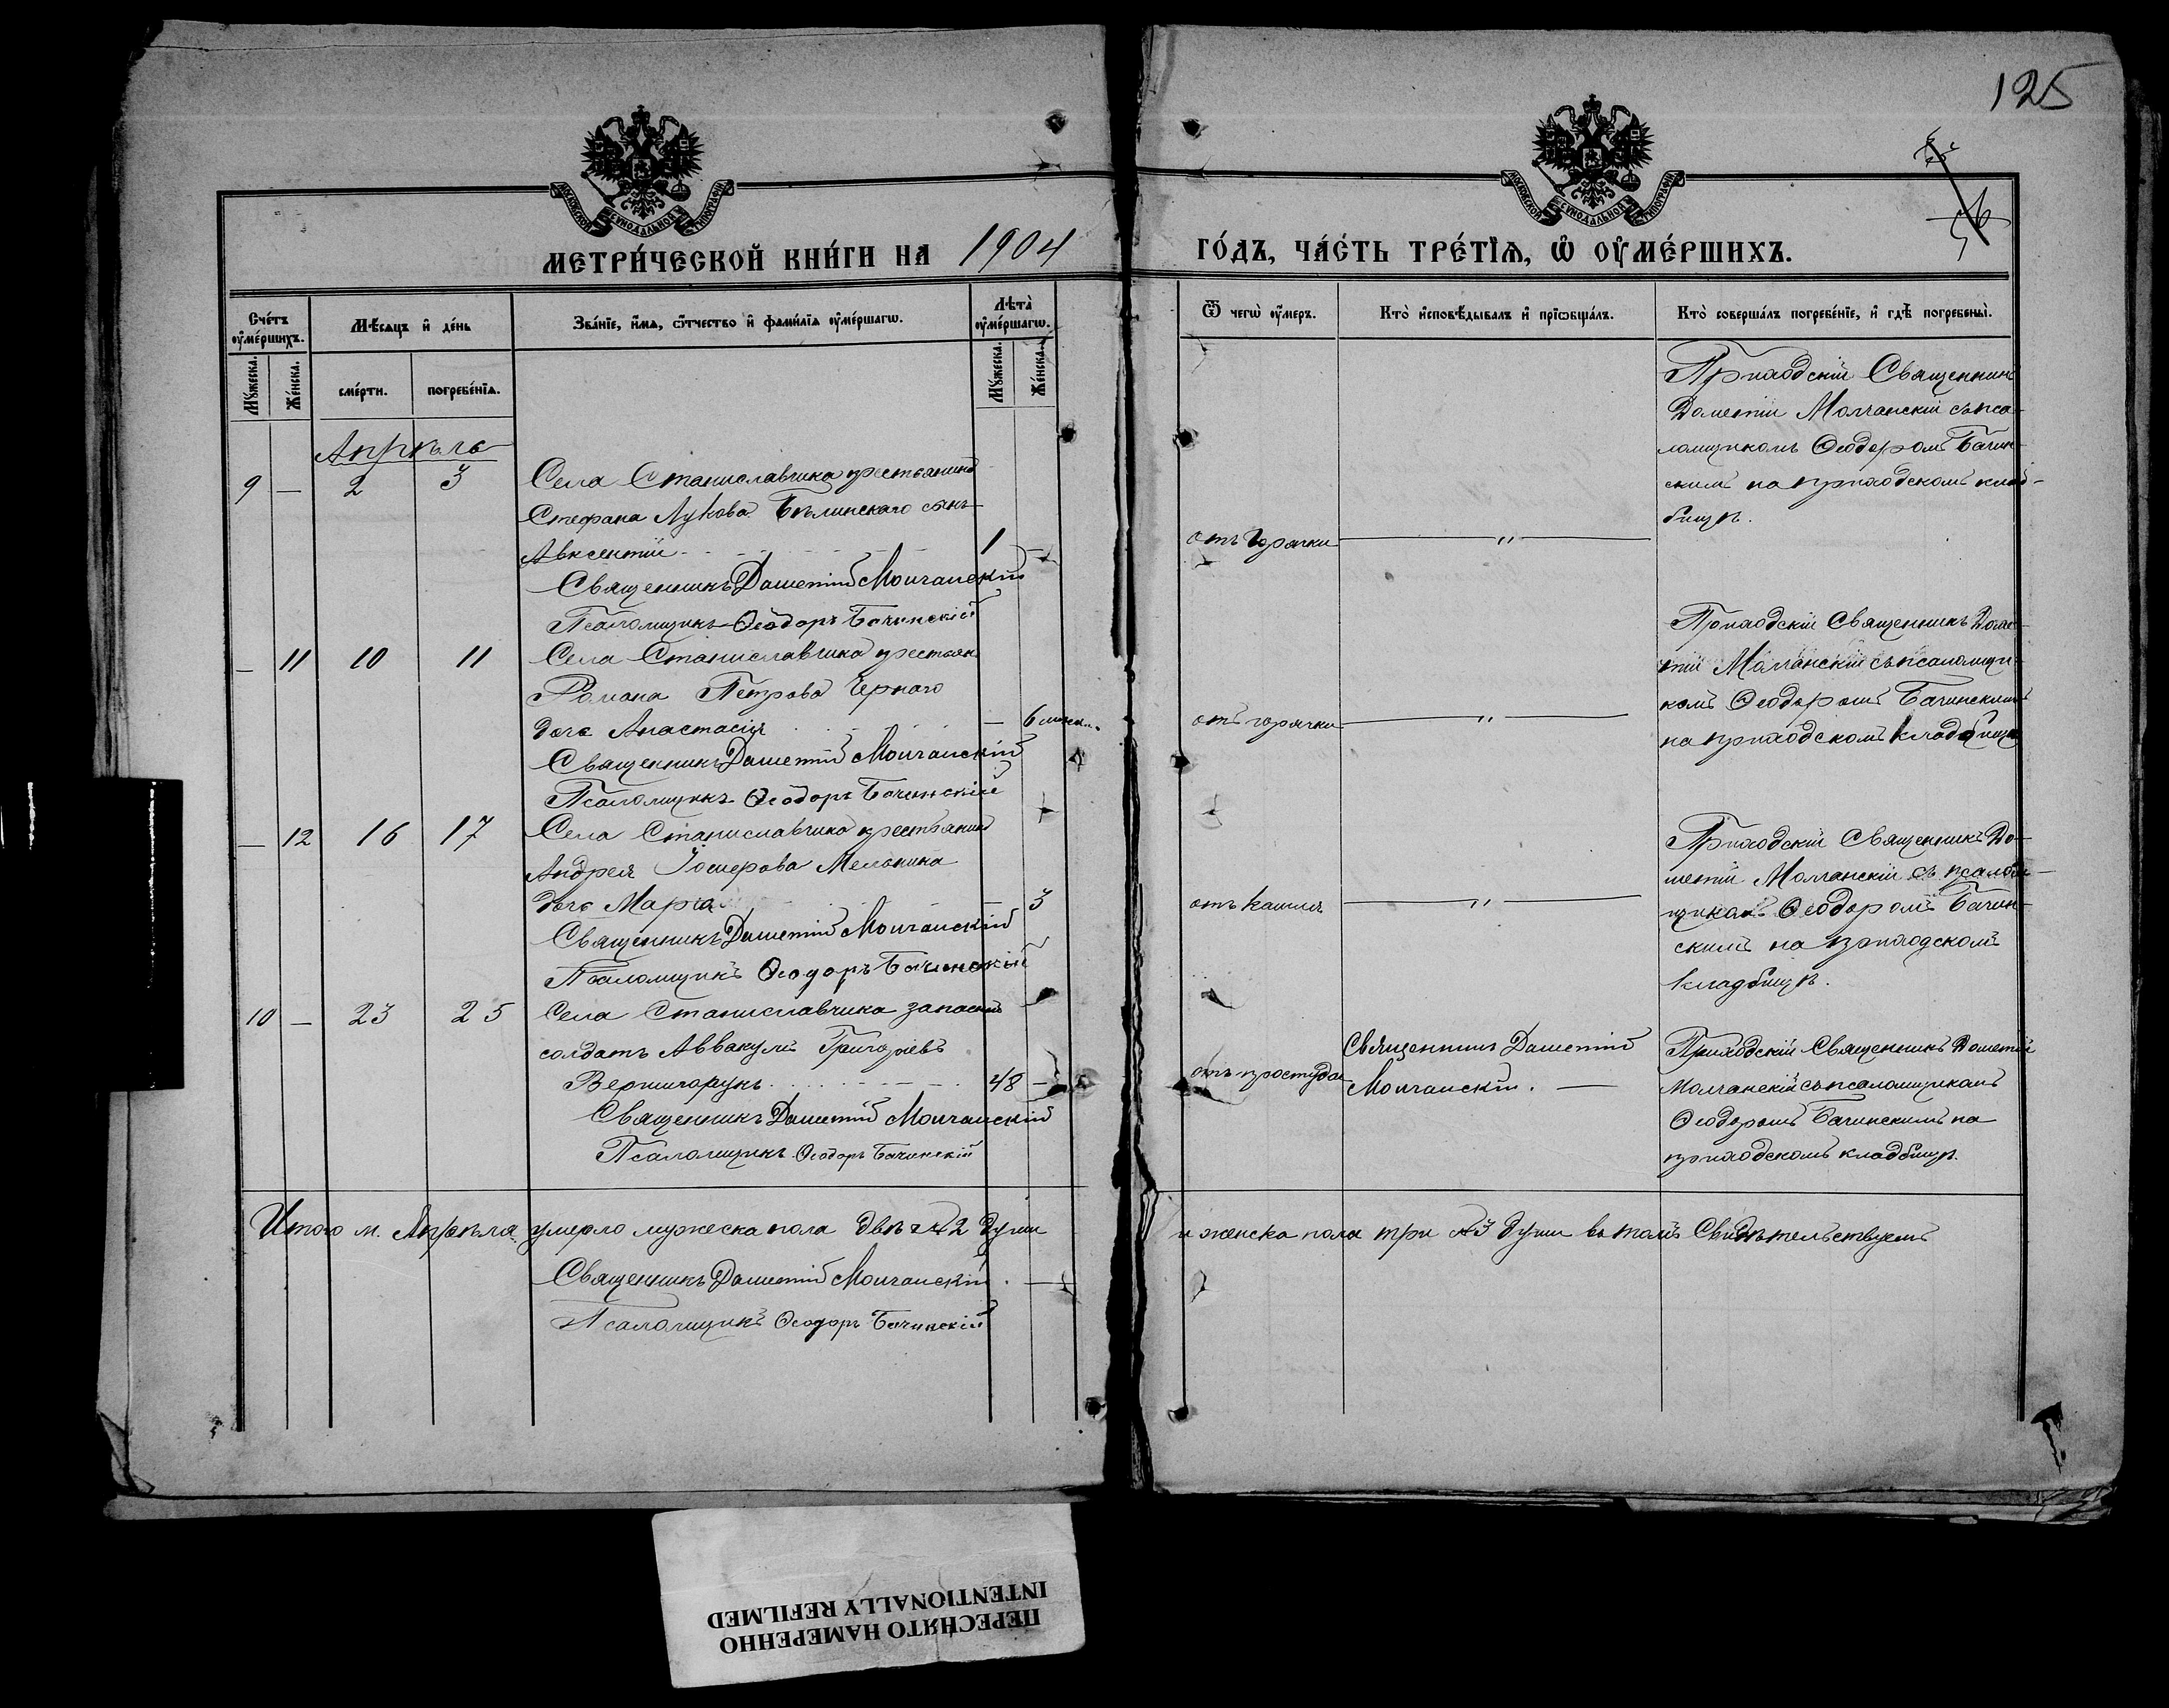 125
МОСКОВСКОЙ СѴНОДАЛЬНОЙ ТИПОГРАФІИ
МОСКОВСКОЙ СѴНОДАЛЬНОЙ ТИПОГРАФІИ
56
МЕТРИ́ЧЕСКОЙ КНИ́ГИ НА 1904
ГО́ДЪ, ЧА́СТЬ ТРЕ́ТІѦ, Ѡ ОУМЕ́РШИХЪ.
Сче́тъ оуме́ршихъ.
Мѣ́сѧцъ и де́нь
Зва́ніе, и́мѧ, ѻ́тчество и фами́лїѧ оуме́ршагѡ.
Лѣта̀ оуме́ршагѡ.
Мꙋ́жеска.
Же́нска.
сме́рти.
погребе́нїѧ.
Мꙋ́жеска.
Же́нска.
Ѿ чегѡ̀ оу́меръ.
Кто̀ и́сповѣ́дывалъ и прїѡбща́лъ.
Кто̀ соверша́лъ погребе́нїе, и гдѣ̀ погребены̀.
Апрѣль
9 — 2 3 Села Станиславчика крестьянина
Стефана Лукова Бѣлинскаго сынъ
Авксентій 1 —
Священникъ Дометій Молчанскій
Псаломщикъ Ѳеодоръ Бачинскій
отъ горячки — „ —
Приходскій Священникъ
Дометій Молчанскій съ пса-
ломщикомъ Ѳеодоромъ Бачин-
скимъ на приходскомъ клад-
бищѣ.
— 11 10 11 Села Станиславчика крестьян.
Романа Петрова Чернаго
дочь Анастасія — 6
Священникъ Дометій Молчанскій
Псаломщикъ Ѳеодоръ Бачинскій
отъ горячки — „ —
Приходскій Священникъ Доме-
тій Молчанскій съ псаломщи-
комъ Ѳеодоромъ Бачинскимъ
на приходскомъ кладбищѣ
— 12 16 17 Села Станиславчика крестьянина
Андрея Іосифова Мельника
дочь Марія — 3
Священникъ Дометій Молчанскій
Псаломщикъ Ѳеодоръ Бачинскій
отъ кашля — „ —
Приходскій Священникъ До-
метій Молчанскій съ псалом-
щикомъ Ѳеодоромъ Бачин-
скимъ на приходскомъ
кладбищѣ.
10 — 23 25 Села Станиславчика запасный
солдатъ Аввакумъ Григоріевъ
Вернигорукъ 48 —
Священникъ Дометій Молчанскій
Псаломщикъ Ѳеодоръ Бачинскій
отъ простуды
Священникъ Дометій
Молчанскій. —
Приходскій Священникъ Дометій
Молчанскій съ псаломщикомъ
Ѳеодоромъ Бачинскимъ на
приходскомъ кладбищѣ.
Итого м. Апрѣля умерло мужеска пола двѣ 2 души
и женска пола три 3 души въ томъ Свидѣтельствуемъ
Священникъ Дометій Молчанскій. —
Псаломщикъ Ѳеодоръ Бачинскій
ПЕРЕСНЯТО НАМЕРЕННО
INTENTIONALLY REFILMED